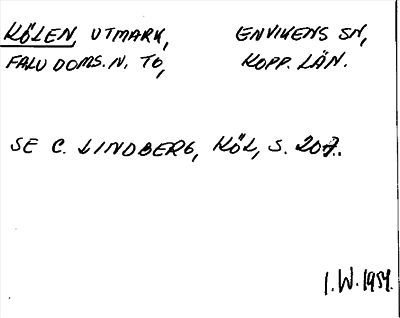 KÖLEN, UTMARK, ENVIKENS SN,
FALU DOMS.N. TO, KOPP. LÄN.
SE C. LINDBERG, KÖL, S. 207.
I.W. 1954.